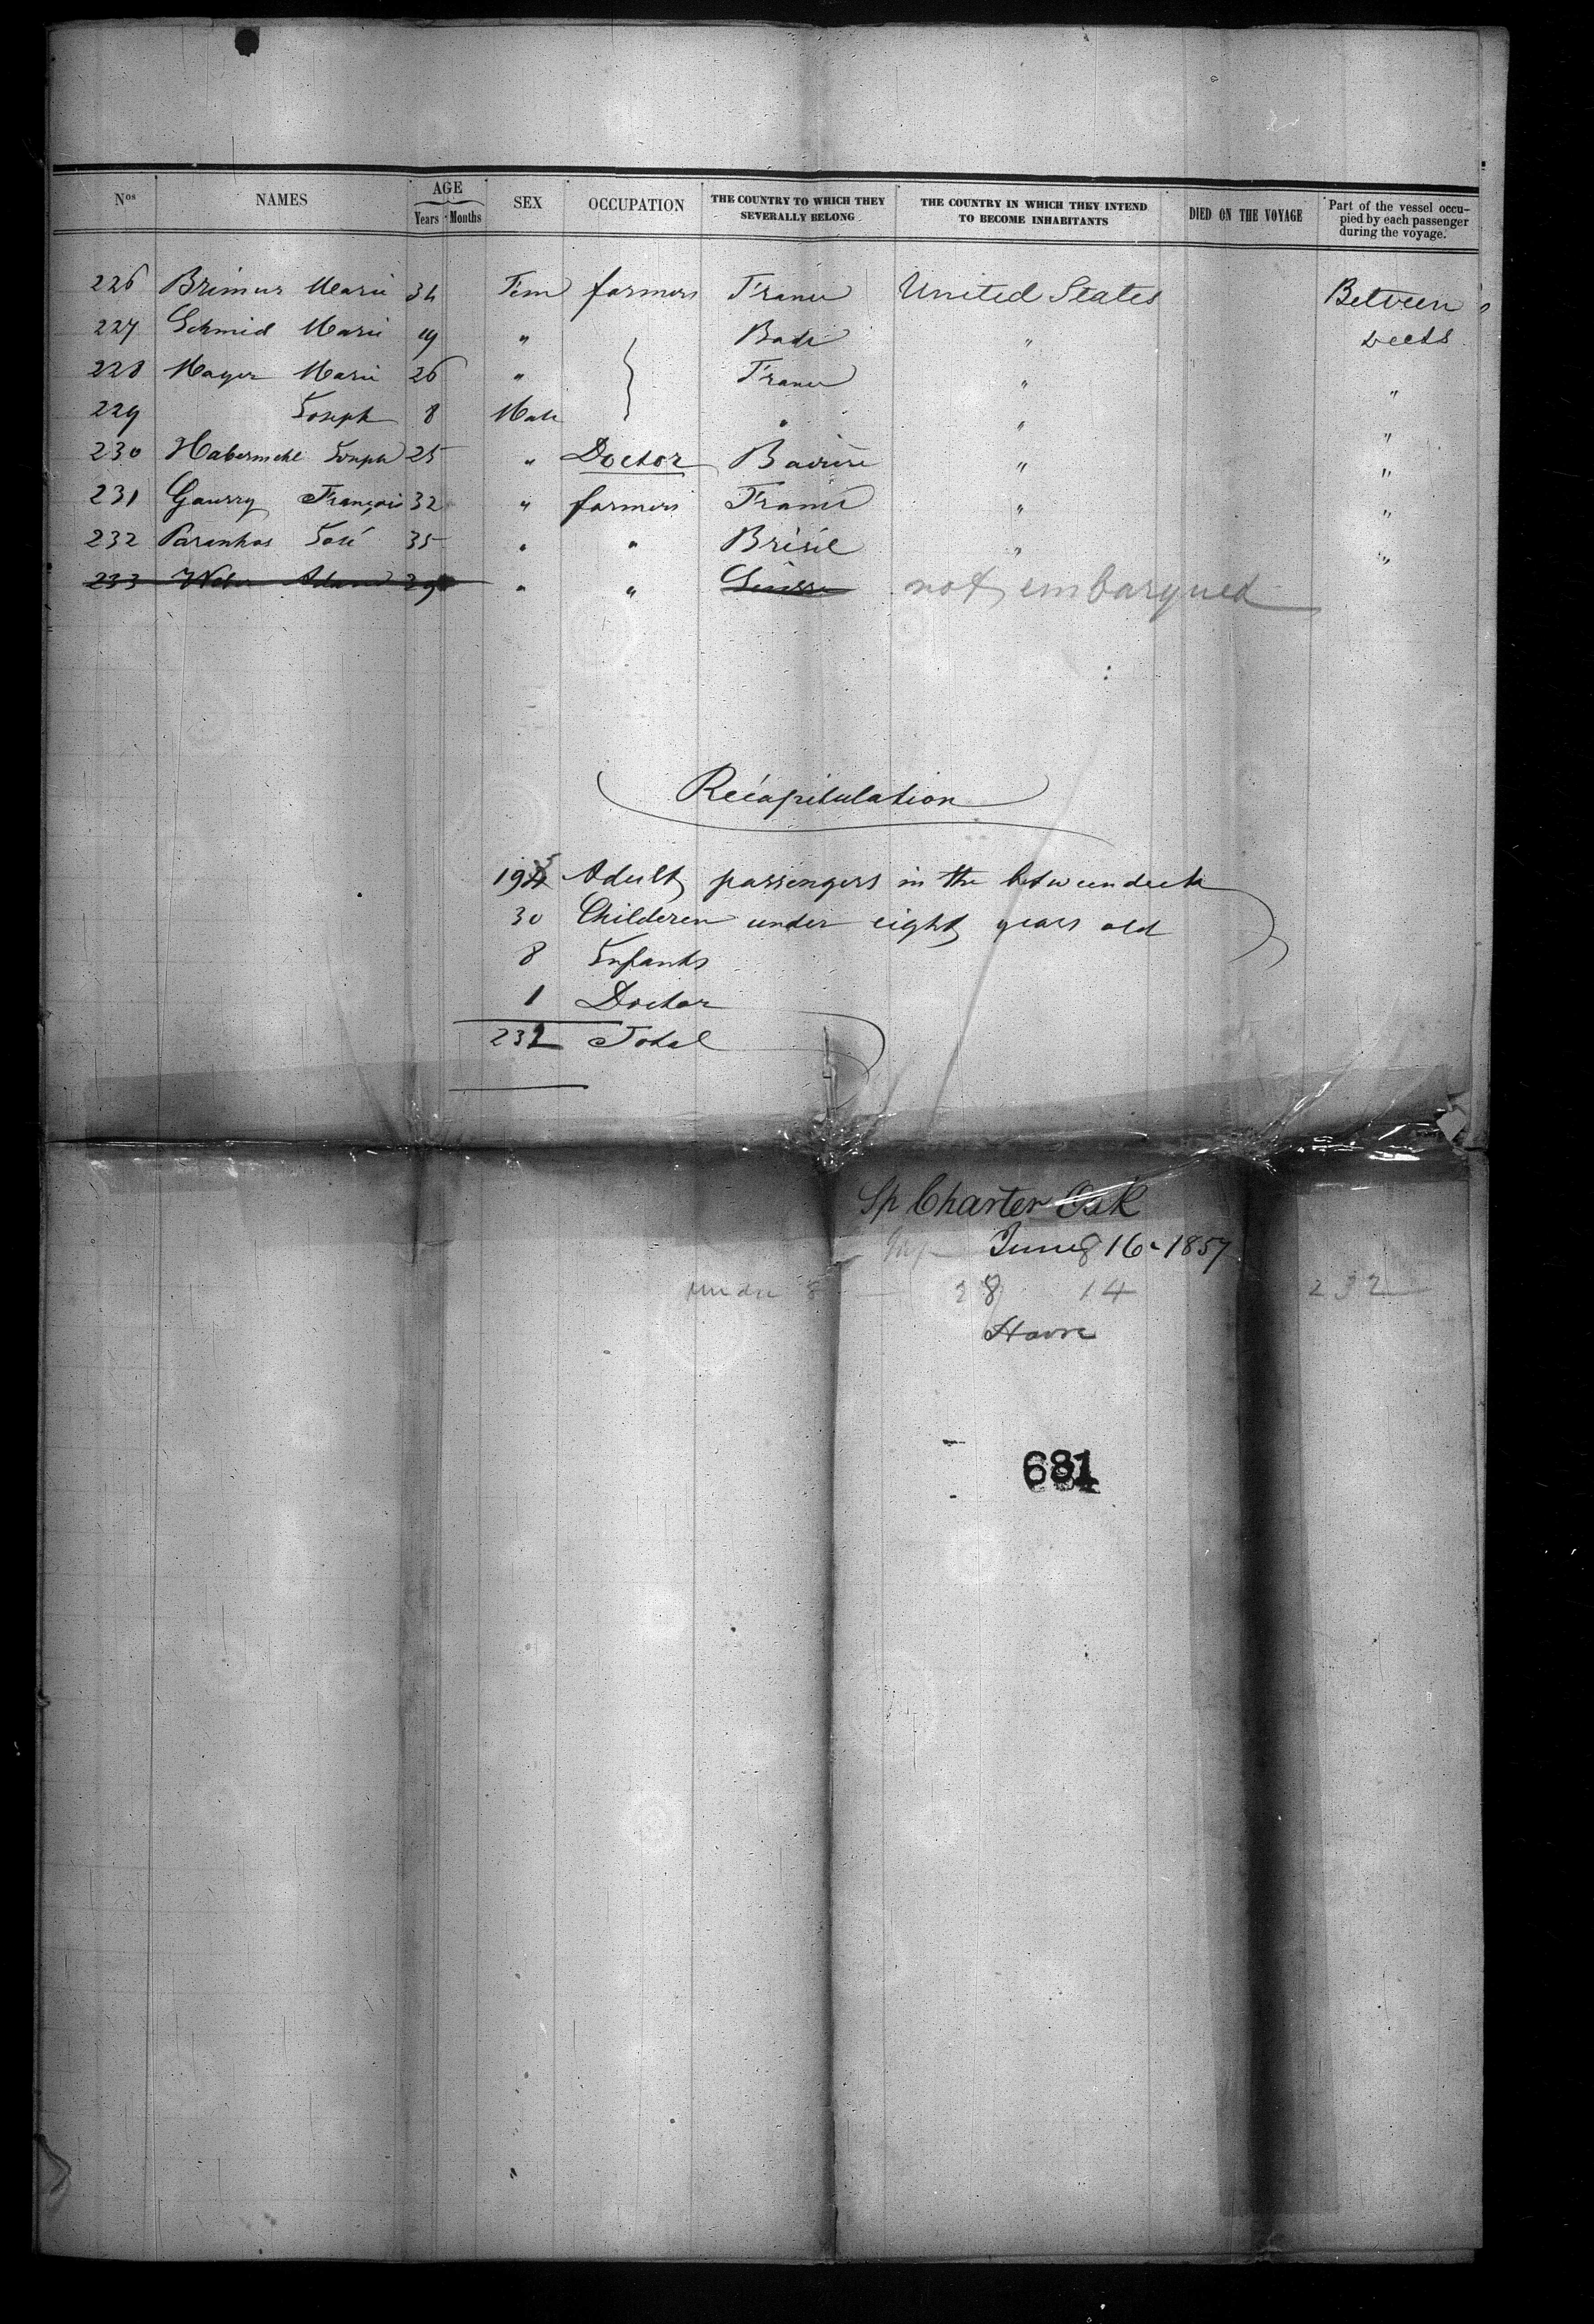 Nos NAMES AGE Years Months SEX OCCUPATION THE COUNTRY TO WHICH THEY SEVERALLY BELONG THE COUNTRY IN WHICH THEY INTEND TO BECOME INHABITANTS DIED ON THE VOYAGE Part of the vessel occupied by each passenger during the voyage.
226 Marie 34 Fem farmers France United States Between
227 Schmid Marie 19 " Bade " decks
228 Mayer Marie 26 " France " "
229 Joseph 8 Male " " "
230 Habermehl Joseph 25 " Doctor Bavière " "
231 Gaurry François 32 " farmers France " "
232 Paranhos José 35 " " Brésil " "
233 Weber Adam 39 " " Suisse not embarqued
Récapitulation
195 Adult passengers in the betweendeck
30 Childeren under eight years old
8 Infants
1 Doctor
232 Total
Sp Charter Oak
June 16 - 1857
under 8 28 14 232
Havre
681